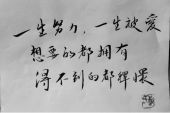 一生努力，一生被爱
想要的都拥有
得不到的都释懷